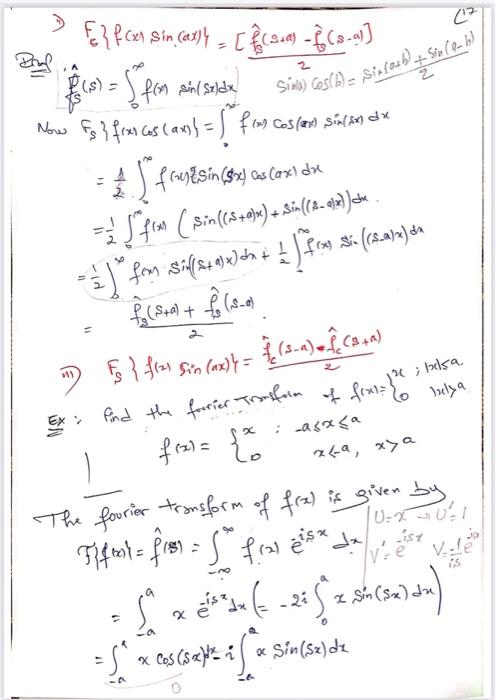 (12
ii) F_s{f(x) sin(ax)} = [f̂_s(s+a) - f̂_s(s-a)] / 2
Proof
f̂_s(s) = ∫_0^∞ f(x) sin(sx) dx
sin(a) cos(b) = (sin(a+b) + sin(a-b)) / 2
Now F_s{f(x) cos(ax)} = ∫_0^∞ f(x) cos(ax) sin(sx) dx
= 1/2 ∫_0^∞ f(x) 2 sin(sx) cos(ax) dx
= 1/2 ∫_0^∞ f(x) (sin((s+a)x) + sin((s-a)x)) dx.
= 1/2 ∫_0^∞ f(x) sin((s+a)x) dx + 1/2 ∫_0^∞ f(x) sin((s-a)x) dx
= (f̂_s(s+a) + f̂_s(s-a)) / 2
iii) F_s{f(x) sin(ax)} = (f̂_c(s-a) - f̂_c(s+a)) / 2
Ex: find the fourier transform of f(x) = {x ; |x|≤a
0 |x|>a
f(x) = {x : -a≤x≤a
0 x<-a, x>a
The fourier transform of f(x) is given by
F{f(x)} = f̂(s) = ∫_{-∞}^∞ f(x) e^{-isx} dx
U=x → U'=1
V'=e^{-isx} V=-1/is e^{-isx}
= ∫_{-a}^a x e^{-isx} dx (= -2i ∫_0^a x sin(sx) dx)
= ∫_{-a}^a x cos(sx) dx - i ∫_{-a}^a x sin(sx) dx
0